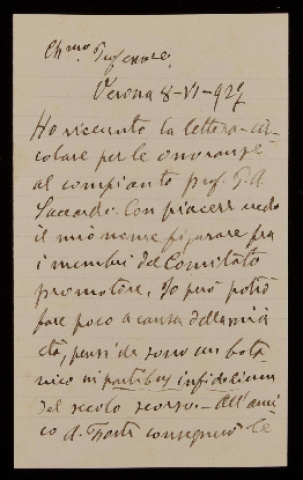 Ch.mo Professore,
Verona 8-VI-927
Ho ricevuto la lettera-cir-
colare per le onoranze
al compianto prof. P. A.
Saccardo. Con piacere vedo
il mio nome figurare fra
i membri del Comitato
promotore. Io però potrò
fare poco a causa della mia
età, pensi che sono un bota-
nico in partibus infidelium
del secolo scorso. - All'ami-
co A. Forti consegnerò le